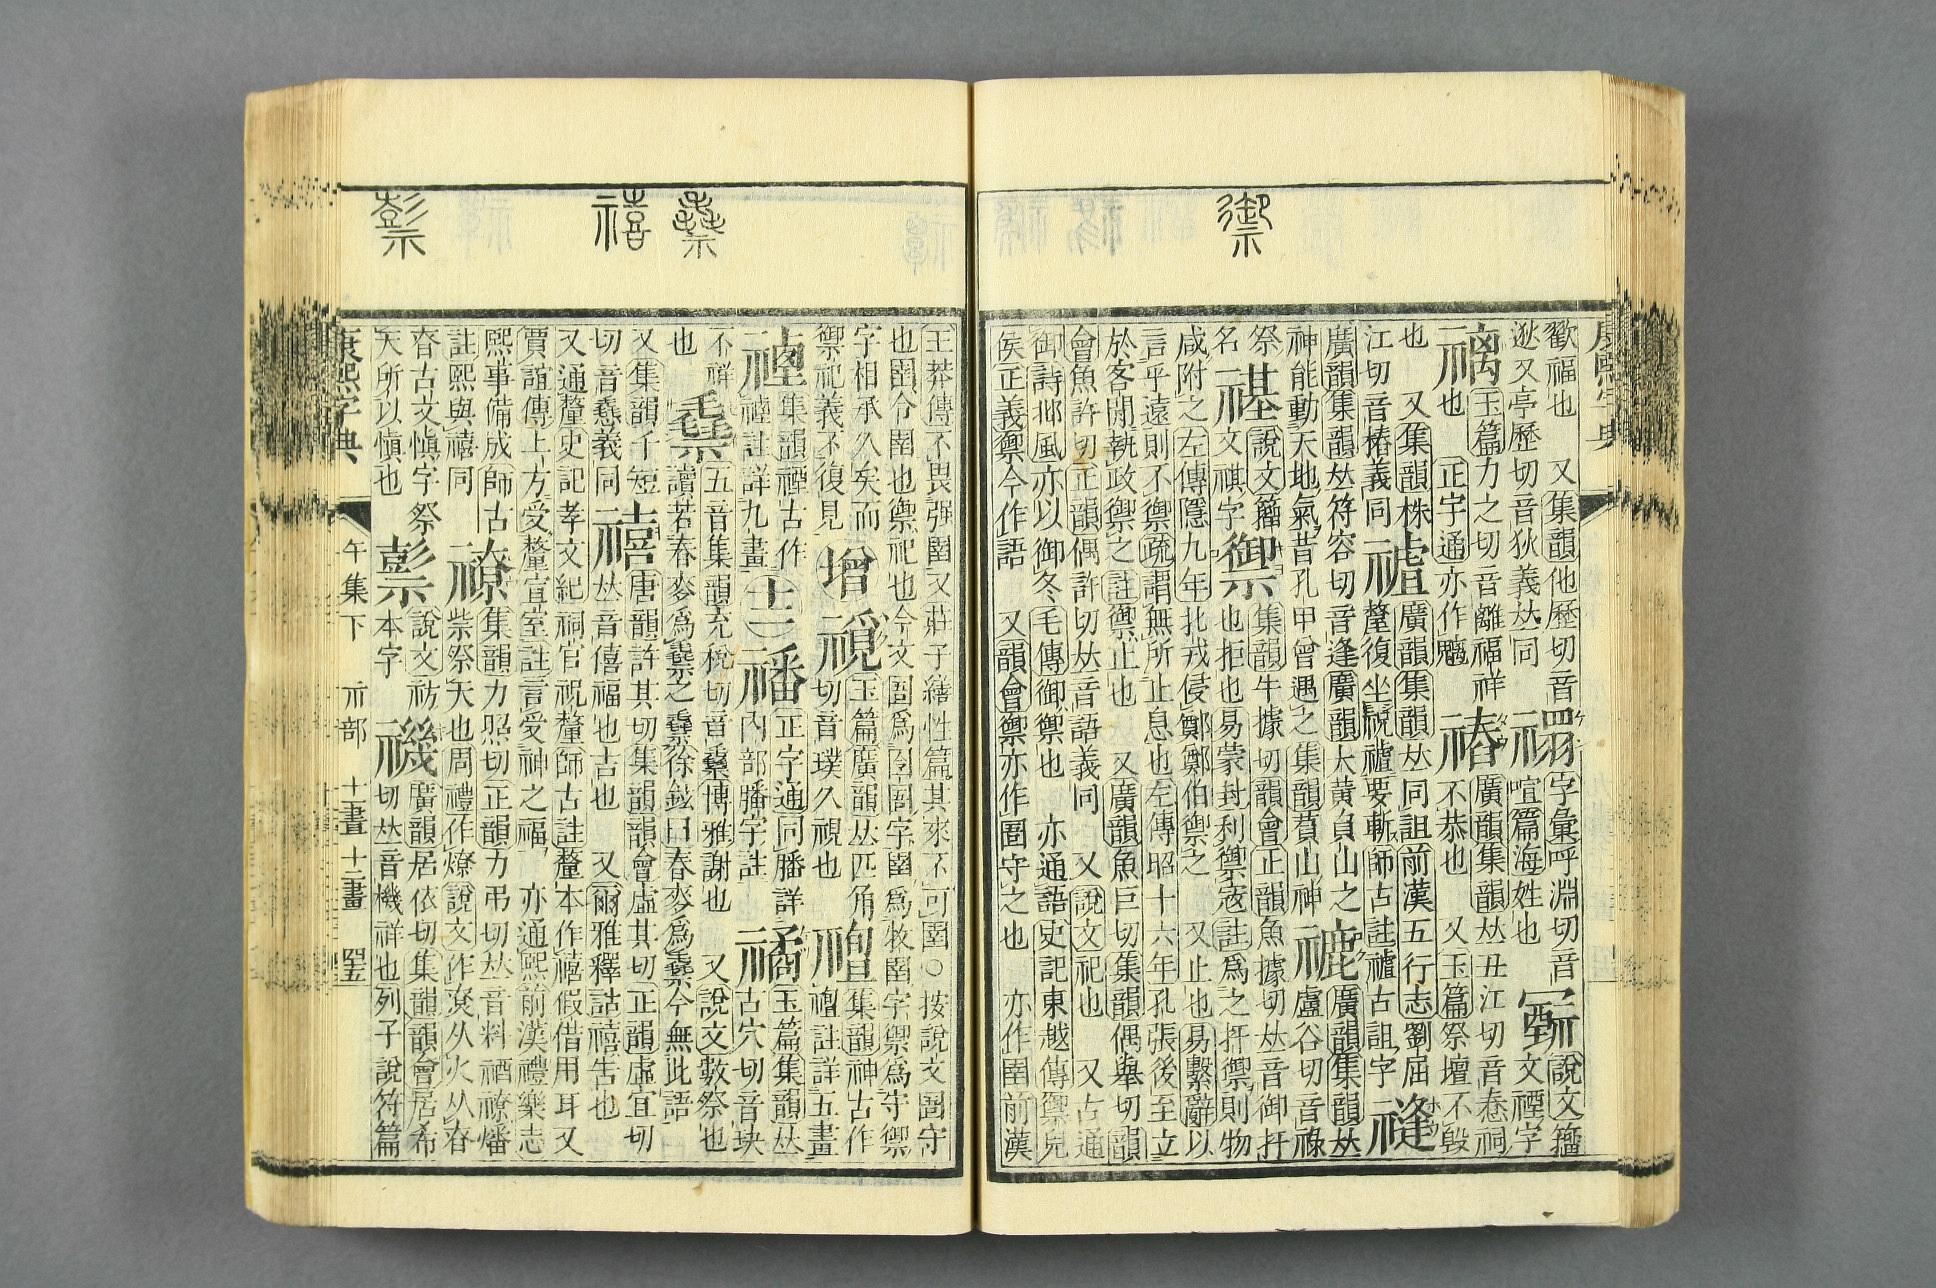 御
𥛱
禧
䄏
康熙字典
歡福也　又集韻他歷切音
逖又亭歷切音狄義𠀤同
字彙呼淵切音
喧篇海姓也
說文籒
文禋字
禼
玉篇力之切音離福祥
也　正字通亦作魑
䄝
廣韻集韻𠀤丑江切音惷祠
不恭也　又玉篇祭壇不毀
也　又集韻株
江切音樁義同
䄟
廣韻集韻𠀤同詛前漢五行志劉屈
氂復坐祝䄟要斬師古註䄟古詛字
䄜
廣韻集韻𠀤符容切音逢廣韻大黃負山之
神能動天地氣昔孔甲曾遇之集韻萯山神
䘵
廣韻集韻𠀤
盧谷切音祿
祭
名
禥
說文籒
文祺字
禦
集韻牛據切韻會正韻魚據切𠀤音御扞
也拒也易蒙封利禦寇註爲之扞禦則物
咸附之左傳隱九年北戎侵鄭鄭伯禦之　又止也易繫辭以
言乎遠則不禦疏謂無所止息也左傳昭十六年孔張後至立
於客閒執政禦之註禦止也　又廣韻魚巨切集韻偶舉切韻
會魚許切正韻偶許切𠀤音語義同　又說文祀也　又古通
御詩邶風亦以御冬毛傳御禦也　亦通語史記東越傳禦兒
侯正義禦今作語　又韻會禦亦作圉守之也　亦作圄前漢
王莽傳不畏强圉又莊子繕性篇其來不可圉○按說文圄守
也圉令圉也禦祀也今文圄爲囹圄字圉爲牧圉字禦爲守禦
字相承久矣而
禦祀義不復見
䙢
玉篇廣韻𠀤匹角
切音璞久視也
䄠
集韻神古作
䄠註詳五畫
禋
集韻禋古作
𥚸註詳九畫
十二
𥛮
正字通同膰詳
內部膰字註
䆷
玉篇集韻𠀤
古穴切音玦
不祥
也
𥛱
五音集韻充稅切音毳博雅謝也　又說文數祭也
讀若春麥爲𥛱之𥛱徐鉉曰春麥爲𥛱今無此語
又集韻千短
切音毳義同
禧
唐韻許其切集韻韻會虛其切正韻虛宜切
𠀤音僖福也吉也　又爾雅釋詁禧告也
又通釐史記孝文紀祠官祝釐師古註釐本作禧假借用耳又
賈誼傳上方受釐宣室註言受神之福　亦通熙前漢禮樂志
熙事備成師古
註熙與禧同
䄦
集韻力照切正韻力弔切𠀤音料𥙫䄦燔
柴祭天也周禮作燎說文作尞从火从昚
昚古文愼字祭
天所以愼也
䄏
說文祊
本字
禨
廣韻居依切集韻韻會居希
切𠀤音機祥也列子說符篇
康熙字典
午集下　示部　十畫　十二畫